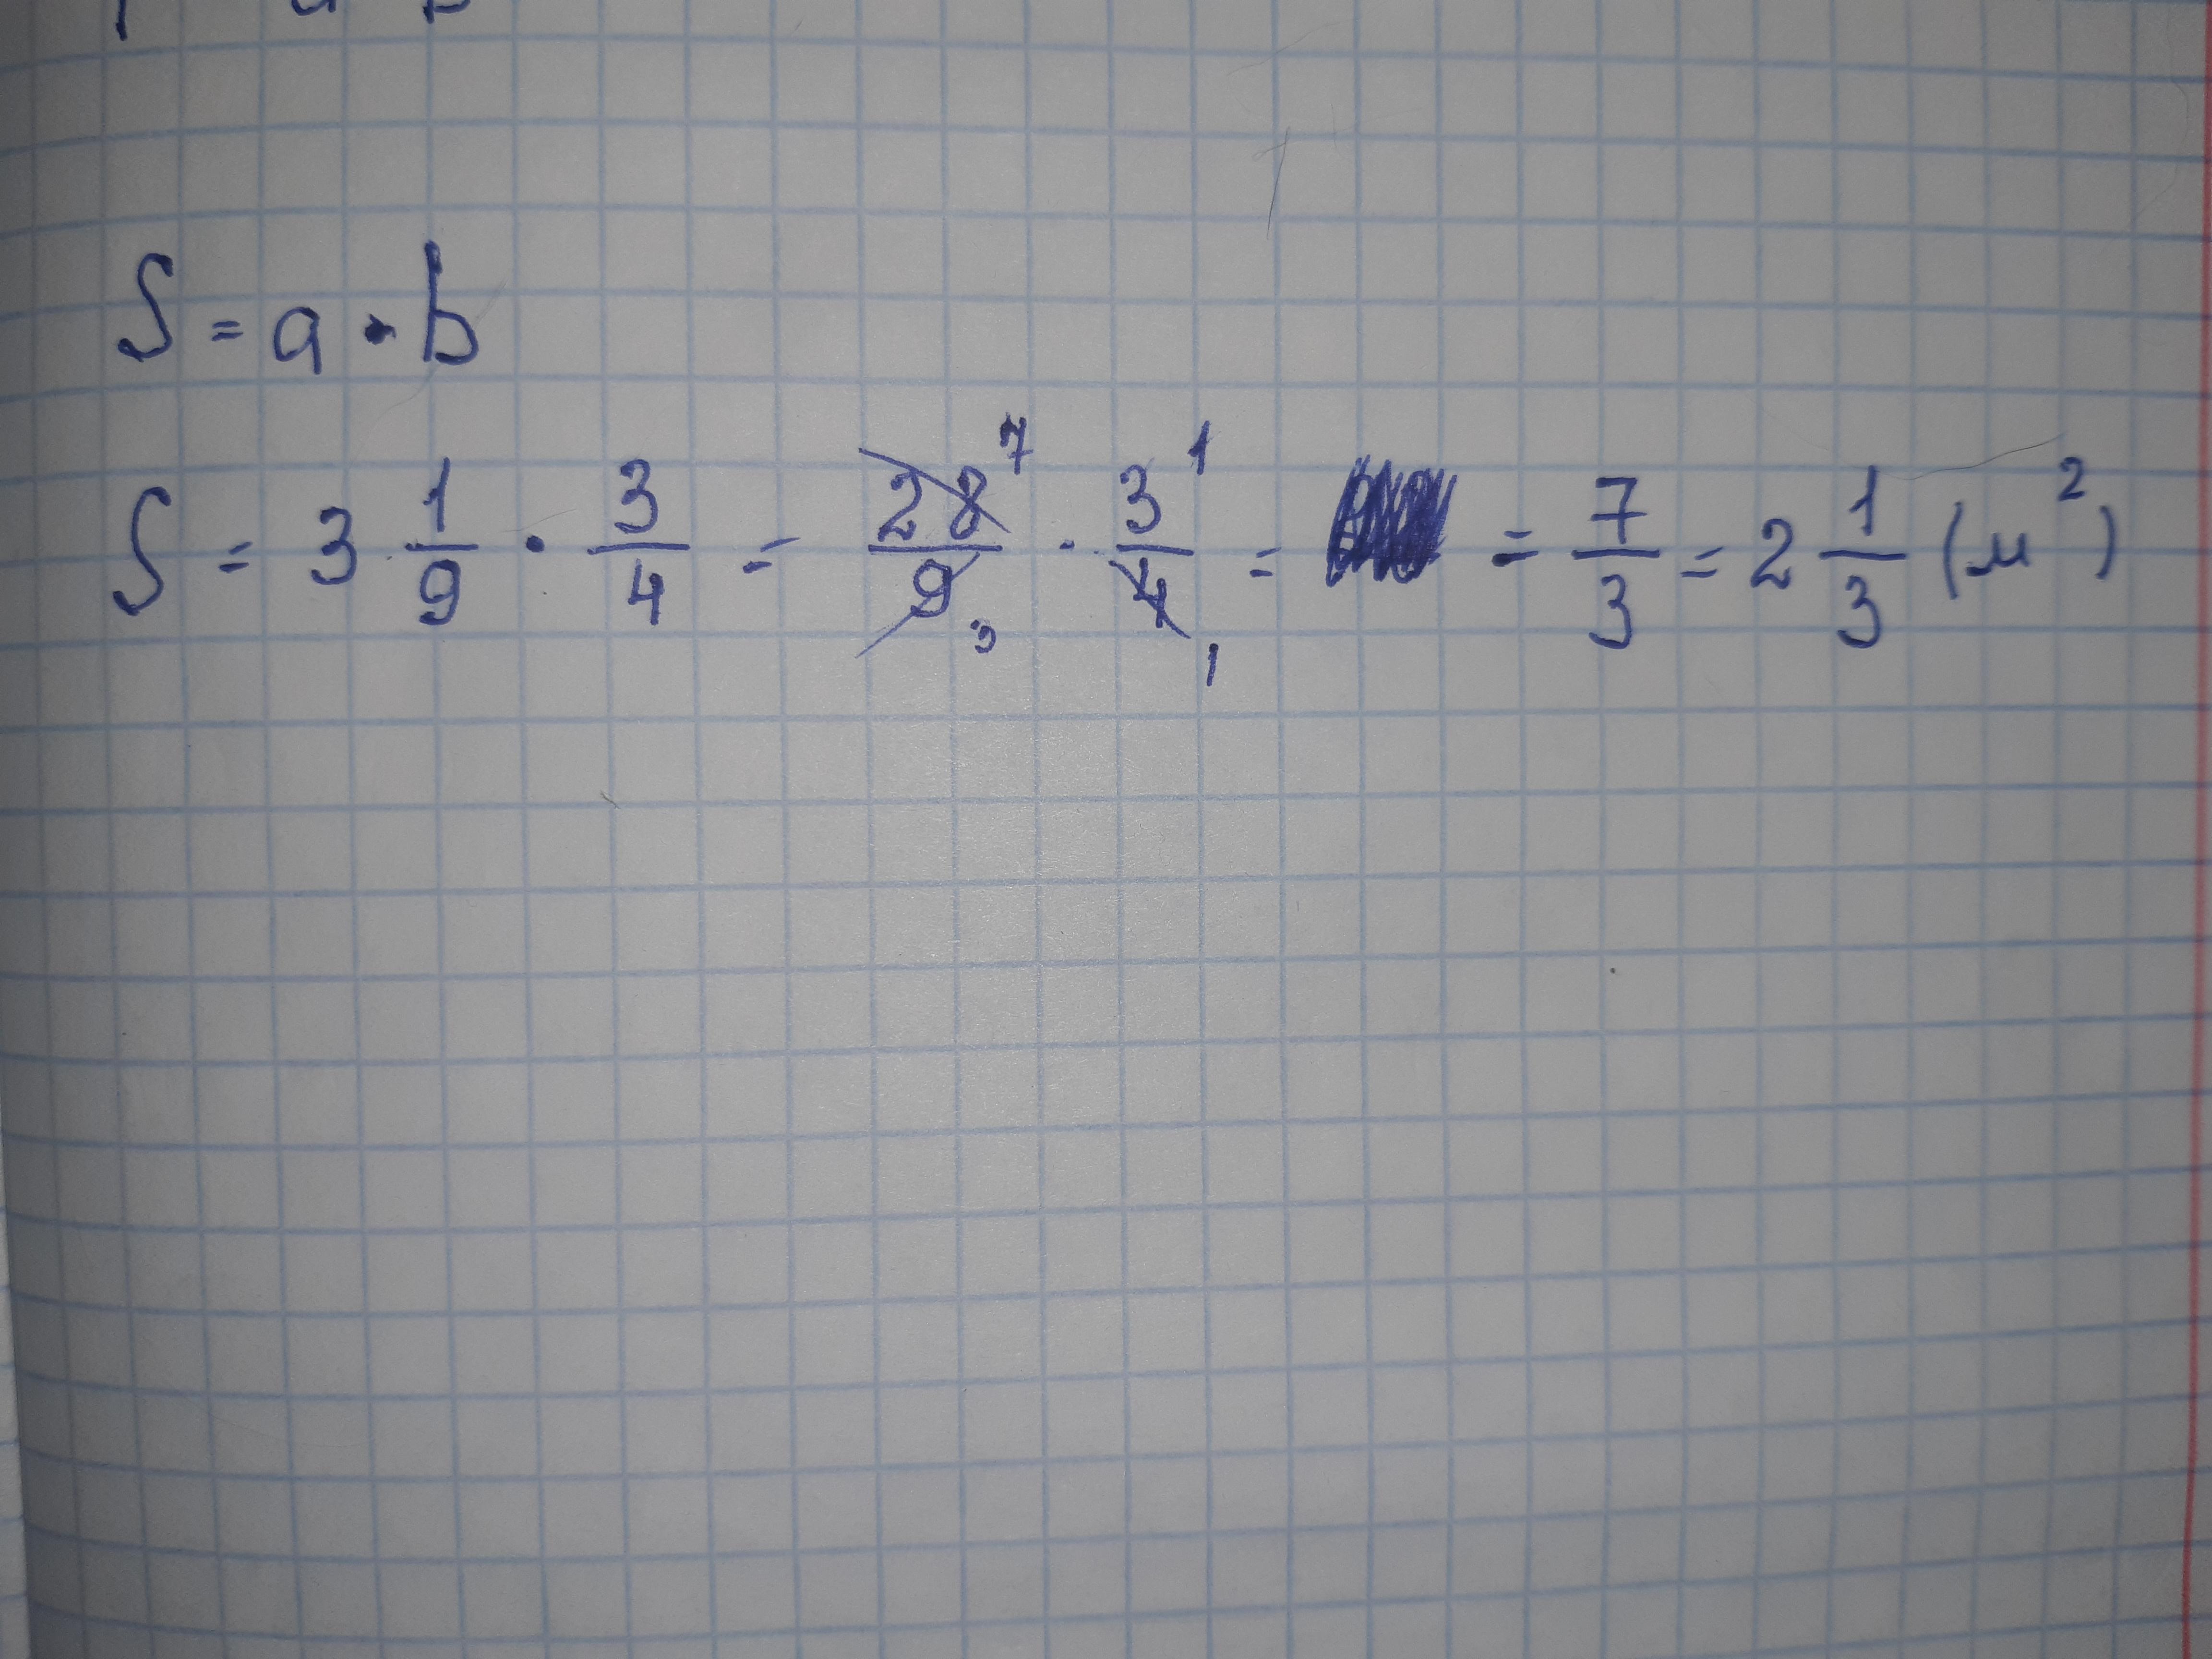 S = a · b
S = 3 1/9 · 3/4 = 28/9 7 3 · 3/4 1 1 = = 7/3 = 2 1/3 (м²)